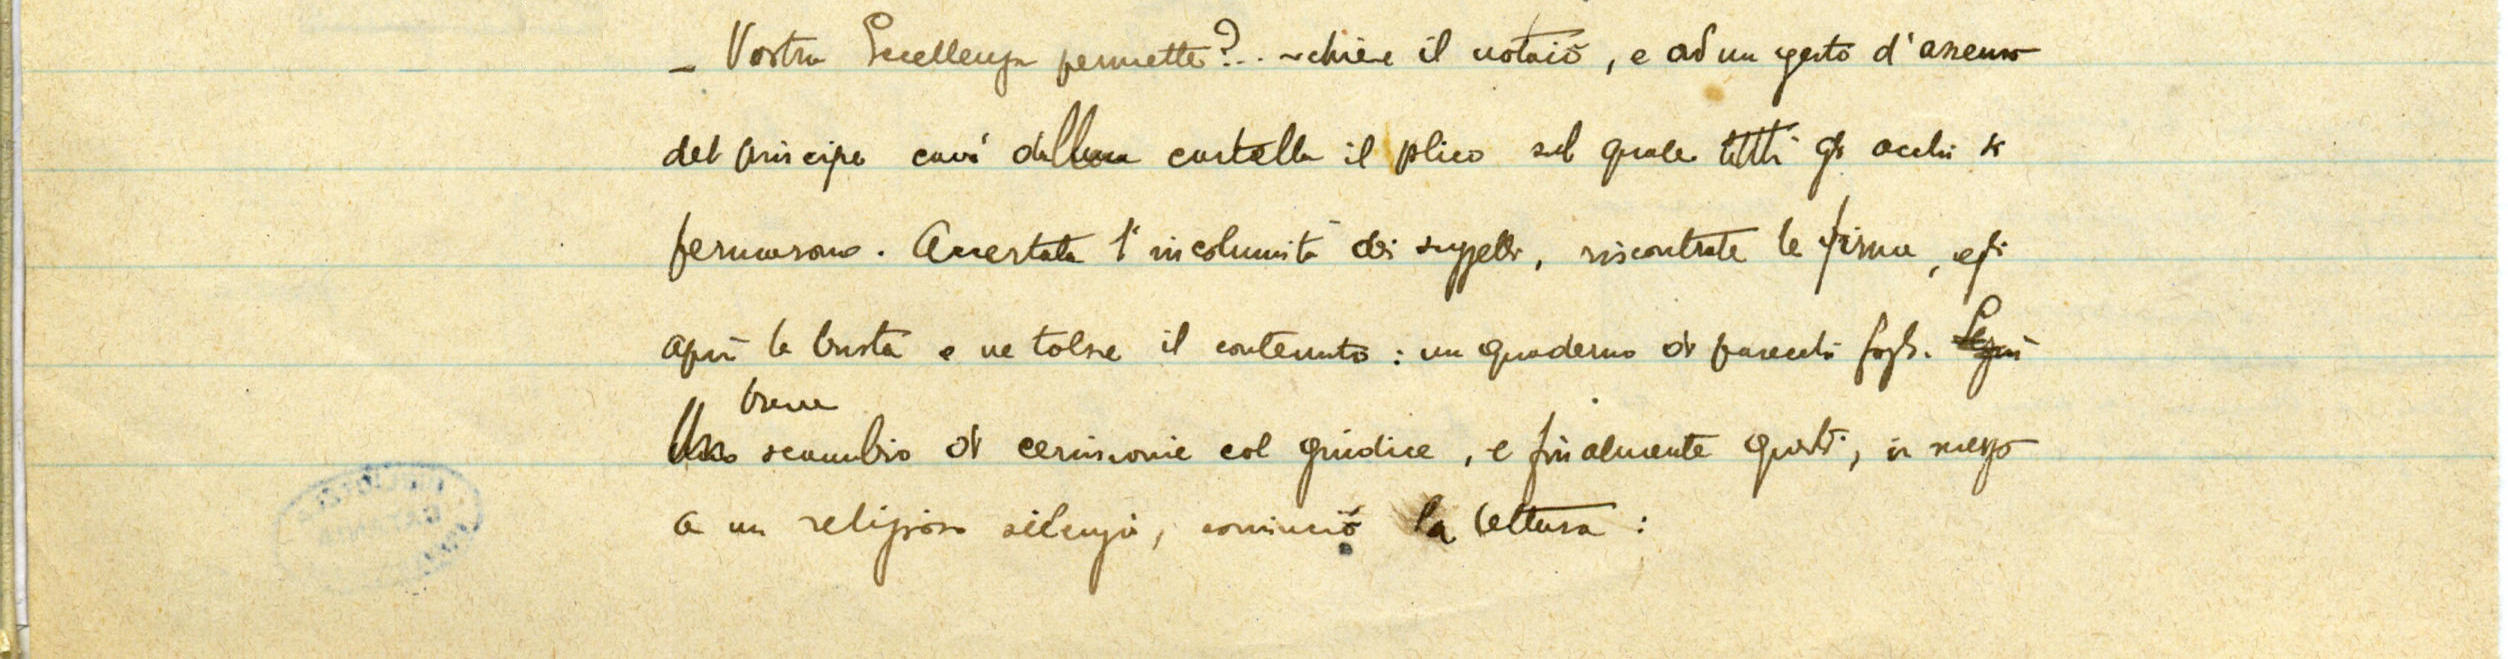 – Vostra Eccellenza permette?... – chiese il notaio, e ad un gesto d'assenso
del principe cavò dalla cartella il plico sul quale tutti gli occhi si
fermarono. Accertata l'incolumità dei suggelli, riscontrate le firme, egli
aprì la busta e ne tolse il contenuto: un quaderno di parecchi fogli. Seguì
breve
Uno scambio di cerimonie col giudice, e finalmente questi, in mezzo
a un religioso silenzio, cominciò la lettura:
CATANIA